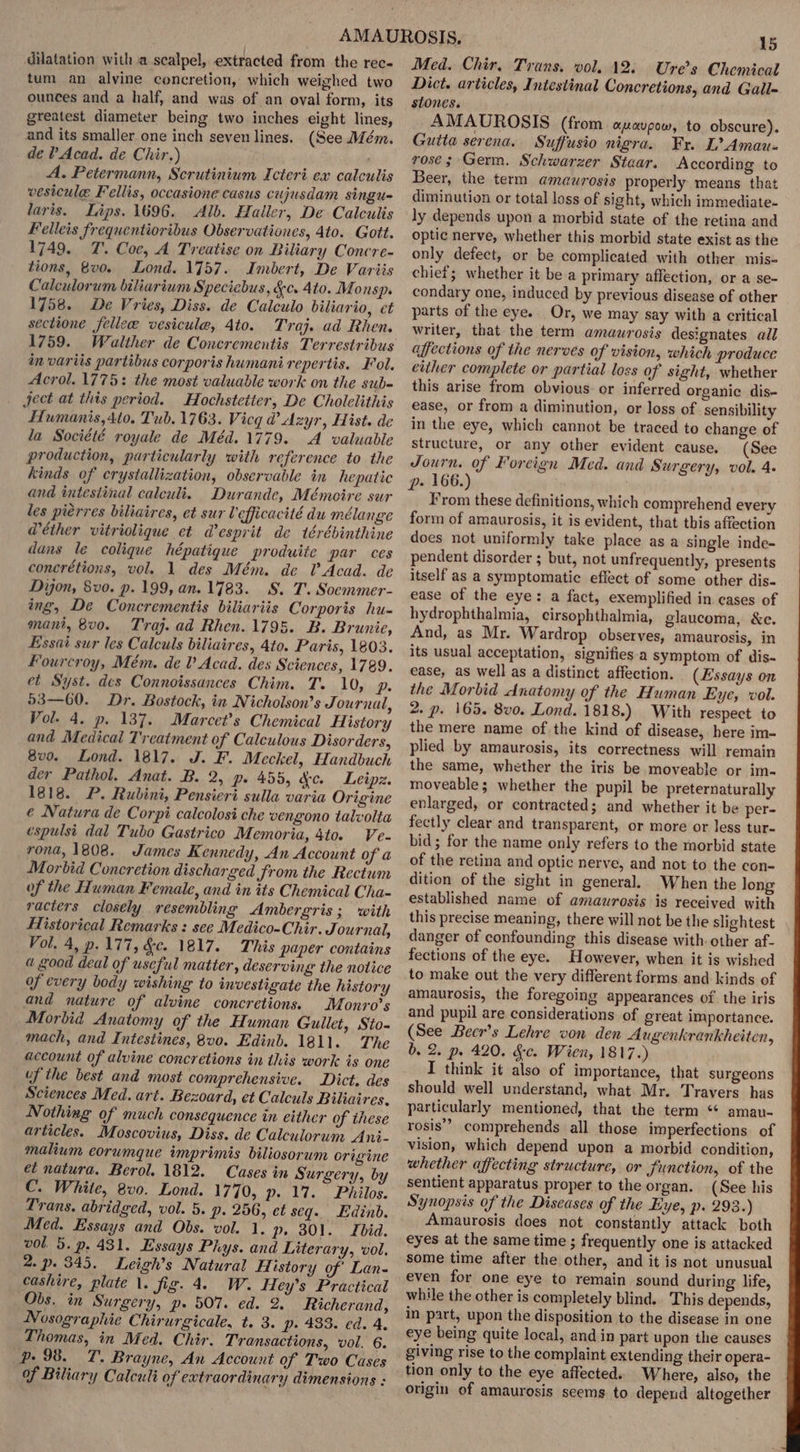 AMAUROSIS.
15
dilatation with a scalpel, extracted from the rec-
tum an alvine concretion, which weighed two
ounces and a half, and was of an oval form, its
greatest diameter being two inches eight lines,
and its smaller one inch seven lines. (See Mém.
de l'Acad. de Chir.)
A. Petermann, Scrutinium Icteri ex calculis
vesiculæ Fellis, occasione casus cujusdam singu-
laris. Lips. 1696. Alb. Haller, De Calculis
Felleis frequentioribus Observationes, 4to. Gott.
1749. T. Coe, A Treatise on Biliary Concre-
tions, 8vo. Lond. 1757. Imbert, De Variis
Calculorum biliarium Speciebus, &c. 4to. Monsp.
1758. De Vries, Diss. de Calculo biliario, et
sectione felleæ vesiculæ, 4to. Traj. ad Rhen.
1759. Walther de Concrementis Terrestribus
in variis partibus corporis humani repertis. Fol.
Acrol. 1775: the most valuable work on the sub-
ject at this period. Hochstetter, De Cholelithis
Humanis, 4to. Tub. 1763. Vicq d'Azyr, Hist. de
la Société royale de Méd. 1779. A valuable
production, particularly with reference to the
kinds of crystallization, observable in hepatic
and intestinal calculi. Durande, Mémoire sur
les pièrres biliaires, et sur l'efficacité du mélange
d'éther vitriolique et d'esprit de térébinthine
dans le colique hépatique produite par ces
concrétions, vol. 1 des Mém. de l'Acad. de
Dijon, 8vo. p. 199, an. 1783. S. T. Soemmer-
ing, De Concrementis biliariis Corporis hu-
mani, 8vo. Traj. ad Rhen. 1795. B. Brunie,
Essai sur les Calculs biliaires, 4to. Paris, 1803.
Fourcroy, Mém. de l'Acad. des Sciences, 1789.
et Syst. des Connoissances Chim. T. 10, p.
53—60. Dr. Bostock, in Nicholson's Journal,
Vol. 4. p. 137. Marcet's Chemical History
and Medical Treatment of Calculous Disorders,
8vo. Lond. 1817. J. F. Meckel, Handbuch
der Pathol. Anat. B. 2, p. 455, &c. Leipz.
1818. P. Rubini, Pensieri sulla varia Origine
e Natura de Corpi calcolosi che vengono talvolta
espulsi dal Tubo Gastrico Memoria, 4to. Ve-
rona, 1808. James Kennedy, An Account of a
Morbid Concretion discharged from the Rectum
of the Human Female, and in its Chemical Cha-
racters closely resembling Ambergris; with
Historical Remarks: see Medico-Chir. Journal,
Vol. 4, p. 177, &c. 1817. This paper contains
a good deal of useful matter, deserving the notice
of every body wishing to investigate the history
and nature of alvine concretions. Monro's
Morbid Anatomy of the Human Gullet, Sto-
mach, and Intestines, 8vo. Edinb. 1811. The
account of alvine concretions in this work is one
of the best and most comprehensive. Dict. des
Sciences Med. art. Bezoard, et Calculs Biliaires.
Nothing of much consequence in either of these
articles. Moscovius, Diss. de Calculorum Ani-
malium eorumque imprimis biliosorum origine
et natura. Berol. 1812. Cases in Surgery, by
C. White, 8vo. Lond. 1770, p. 17. Philos.
Trans. abridged, vol. 5. p. 256, et seq. Edinb.
Med. Essays and Obs. vol. 1. p. 301. Ibid.
vol 5. p. 431. Essays Phys. and Literary, vol.
2. p. 345. Leigh's Natural History of Lan-
cashire, plate 1. fig. 4. W. Hey's Practical
Obs. in Surgery, p. 507. ed. 2. Richerand,
Nosographie Chirurgicale, t. 3. p. 433. ed. 4.
Thomas, in Med. Chir. Transactions, vol. 6.
p. 98. T. Brayne, An Account of Two Cases
of Biliary Calculi of extraordinary dimensions:
Med. Chir. Trans. vol. 12. Ure's Chemical
Dict. articles, Intestinal Concretions, and Gall-
stones.
AMAUROSIS (from αμαυροω, to obscure).
Gutta serena. Suffusio nigra. Fr. L'Amau-
rose; Germ. Schwarzer Staar. According to
Beer, the term amaurosis properly means that
diminution or total loss of sight, which immediate-
ly depends upon a morbid state of the retina and
optic nerve, whether this morbid state exist as the
only defect, or be complicated with other mis-
chief; whether it be a primary affection, or a se-
condary one, induced by previous disease of other
parts of the eye. Or, we may say with a critical
writer, that the term amaurosis designates all
affections of the nerves of vision, which produce
either complete or partial loss of sight, whether
this arise from obvious or inferred organic dis-
ease, or from a diminution, or loss of sensibility
in the eye, which cannot be traced to change of
structure, or any other evident cause. (See
Journ. of Foreign Med. and Surgery, vol. 4.
p. 166.)
From these definitions, which comprehend every
form of amaurosis, it is evident, that this affection
does not uniformly take place as a single inde-
pendent disorder; but, not unfrequently, presents
itself as a symptomatic effect of some other dis-
ease of the eye: a fact, exemplified in cases of
hydrophthalmia, cirsophthalmia, glaucoma, &c.
And, as Mr. Wardrop observes, amaurosis, in
its usual acceptation, signifies a symptom of dis-
ease, as well as a distinct affection. (Essays on
the Morbid Anatomy of the Human Eye, vol.
2. p. 165. 8vo. Lond. 1818.) With respect to
the mere name of the kind of disease, here im-
plied by amaurosis, its correctness will remain
the same, whether the iris be moveable or im-
moveable; whether the pupil be preternaturally
enlarged, or contracted; and whether it be per-
fectly clear and transparent, or more or less tur-
bid; for the name only refers to the morbid state
of the retina and optic nerve, and not to the con-
dition of the sight in general. When the long
established name of amaurosis is received with
this precise meaning, there will not be the slightest
danger of confounding this disease with other af-
fections of the eye. However, when it is wished
to make out the very different forms and kinds of
amaurosis, the foregoing appearances of the iris
and pupil are considerations of great importance.
(See Beer's Lehre von den Augenkrankheiten,
b. 2. p. 420. &c. Wien, 1817.)
I think it also of importance, that surgeons
should well understand, what Mr. Travers has
particularly mentioned, that the term “ amau-
rosis” comprehends all those imperfections of
vision, which depend upon a morbid condition,
whether affecting structure, or function, of the
sentient apparatus proper to the organ. (See his
Synopsis of the Diseases of the Eye, p. 293.)
Amaurosis does not constantly attack both
eyes at the same time; frequently one is attacked
some time after the other, and it is not unusual
even for one eye to remain sound during life,
while the other is completely blind. This depends,
in part, upon the disposition to the disease in one
eye being quite local, and in part upon the causes
giving rise to the complaint extending their opera-
tion only to the eye affected. Where, also, the
origin of amaurosis seems to depend altogether